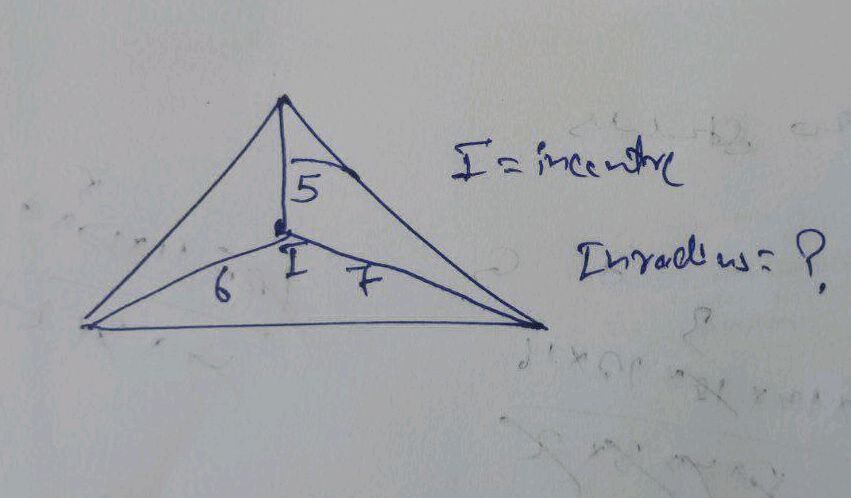 I = incentre
5
Inradius = ?
6 I 7